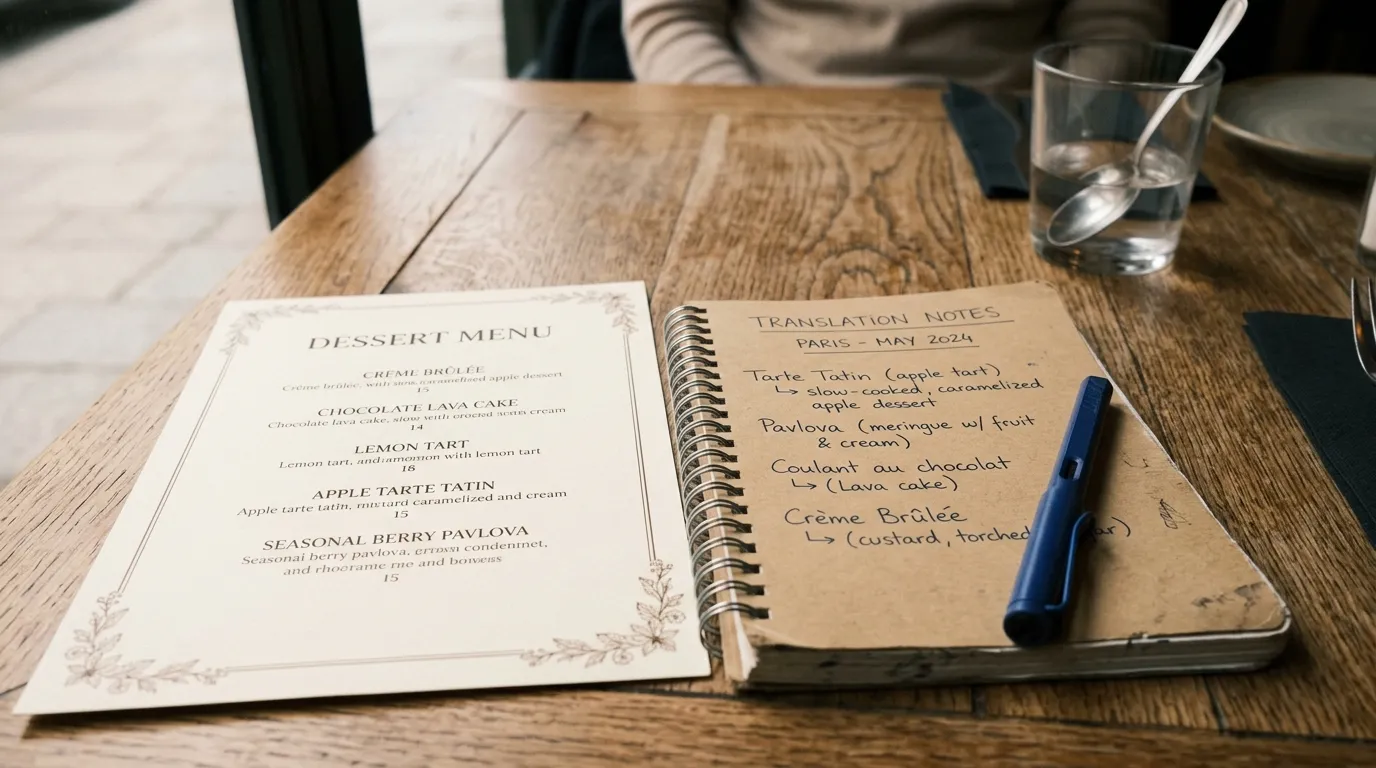 DESSERT MENU
CRÈME BRÛLÉE
Crème brûlée, with caramelized apple dessert
15
CHOCOLATE LAVA CAKE
Chocolate lava cake, slow with cream
14
LEMON TART
Lemon tart, with lemon tart
18
APPLE TARTE TATIN
Apple tarte tatin, caramelized and cream
15
SEASONAL BERRY PAVLOVA
Seasonal berry pavlova,
and and
15
TRANSLATION NOTES
PARIS - MAY 2024
Tarte Tatin (apple tart)
↳ slow-cooked, caramelized
apple dessert
Pavlova (meringue w/ fruit
& cream)
Coulant au chocolat
↳ (Lava cake)
Crème Brûlée
↳ (custard, torched